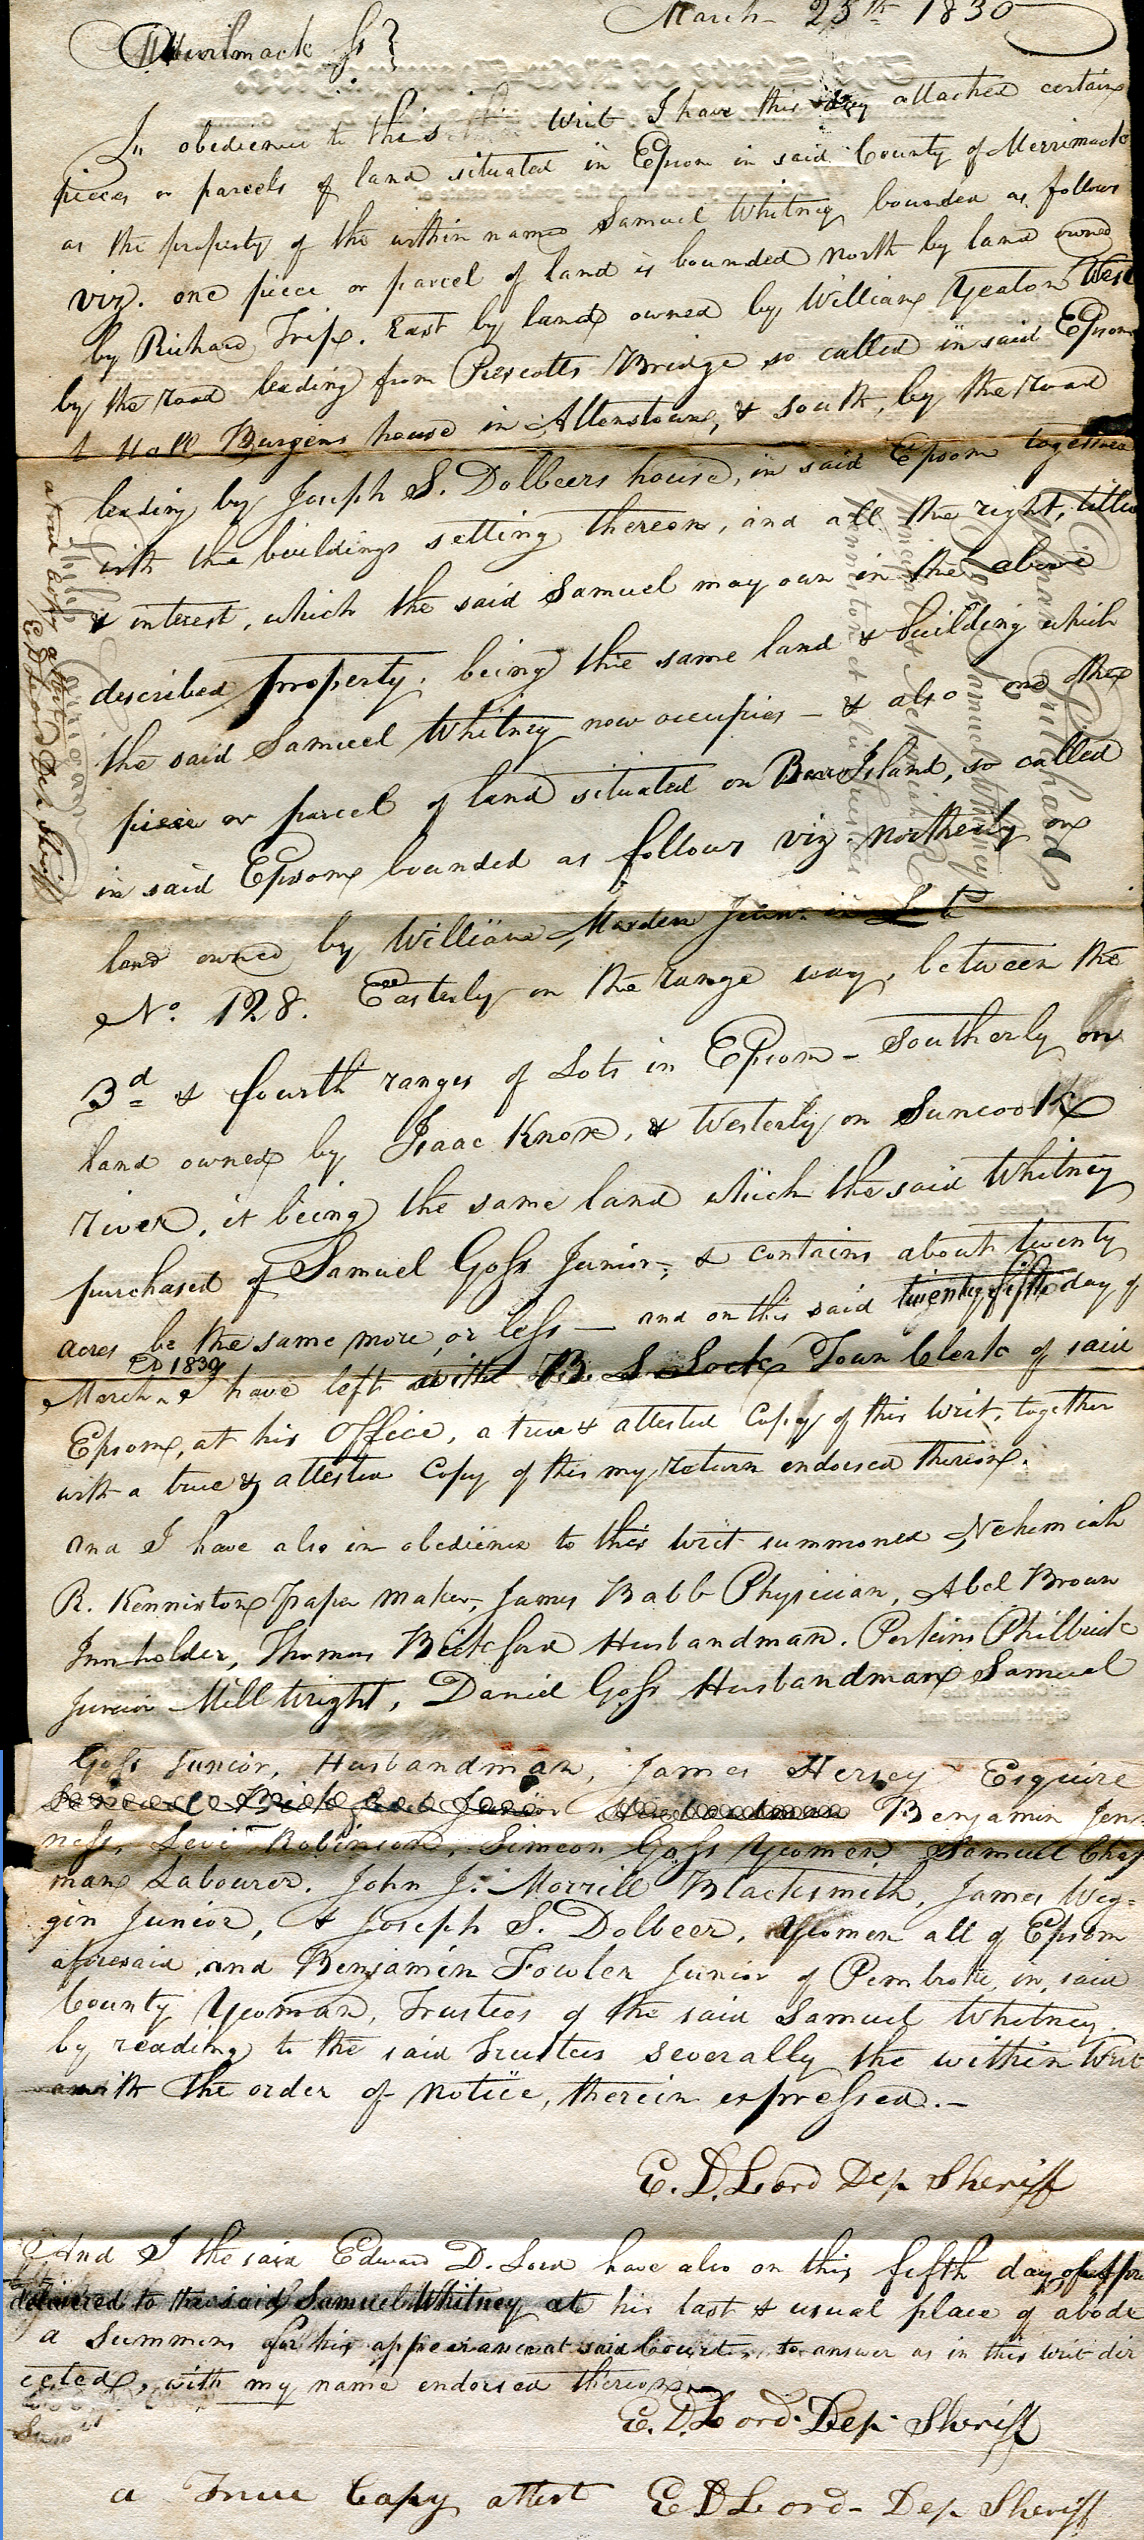 March 25th 1830
Merrimack Ss }
In obedience to this writ I have this day attached certain
pieces or parcels of land situated in Epsom in said County of Merrimack
as the property of the within named Samuel Whitney bounded as follows
viz. one piece or parcel of land is bounded north by land owned
by Richard Tripp. East by land owned by William Yeaton West
by the road leading from Prescotts Bridge so called in said Epsom
to Hall Burgins house in Allenstown, & south, by the road
leading by Joseph S. Dolbeers house, in said Epsom together
with the buildings setting thereon, and all the right, title
& interest, which the said Samuel may own in the above
described property. being the same land & building which
the said Samuel Whitney now occupies – & also one other
piece or parcel of land situated on Bear Island, so called
in said Epsom bounded as follows viz. northerly on
land owned by William Marden Junr. in Lot
No. 128. Easterly on the range way, between the
3d & fourth ranges of Lots in Epsom – Southerly on
land owned by Isaac Knox, & Westerly on Suncook
river, it being the same land which the said Whitney
purchased of Samuel Goss Junior, & contains about twenty
acres be the same more or less — and on this said twenty fifth day of
AD 1830
March I have left with B. L. Lock Town Clerk of said
Epsom, at his Office, a true & attested Copy of this Writ, together
with a true & attested Copy of this my return endorsed thereon.
and I have also in obedience to this writ summoned Nehemiah
R. Kenniston Paper Maker, James Babb Physician, Abel Brown
Innholder, Thomas Bickford Husbandman. Perkins Philbrick
Junior Mill Wright, Daniel Goss Husbandman Samuel
Goss Junior, Husbandman, James Hersey Esquire
Benjamin Jen-
ness, Levi Robinson, Simeon Goss Yeomen, Samuel Chap
man Labourer. John J. Morrill Blacksmith, James Wig-
gin Junior, & Joseph S. Dolbeer, Yeomen all of Epsom
aforesaid and Benjamin Fowler Junior of Pembroke in said
County Yeoman, Trustees of the said Samuel Whitney.
by reading to the said Trustees severally the within Writ
with the order of notice, therein expressed. –
E. D. Lord Dep Sheriff
And I the said Edward D. Lord have also on this fifth day of Apri
delivered to the said Samuel Whitney at his last & usual place of abode
a Summons for his appearance at said Court, to answer as in this writ dir
ected, with my name endorsed thereon
E. D. Lord Dep. Sheriff
a True Copy attest E D Lord – Dep Sheriff
a true Copy attest
E D Lord Dep Sheriff
Samuel Whitney